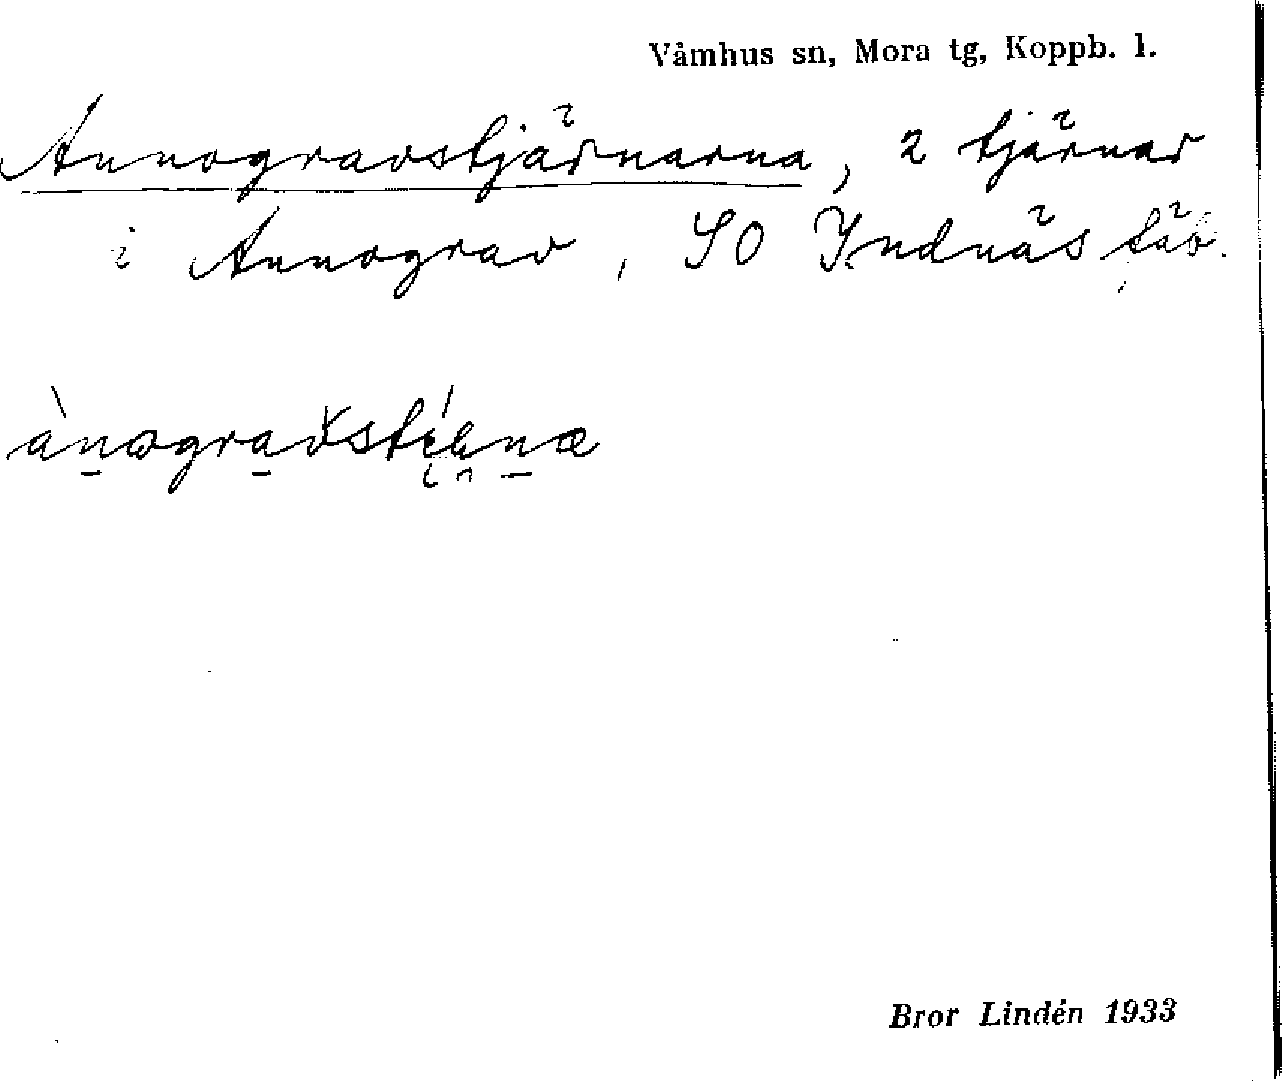 Våmhus sn, Mora tg, Koppb. l.
Annogravstjärnarna, 2 tjärnar
i Annograv, SO Indnäs fäb.
Bror Lindén 1933